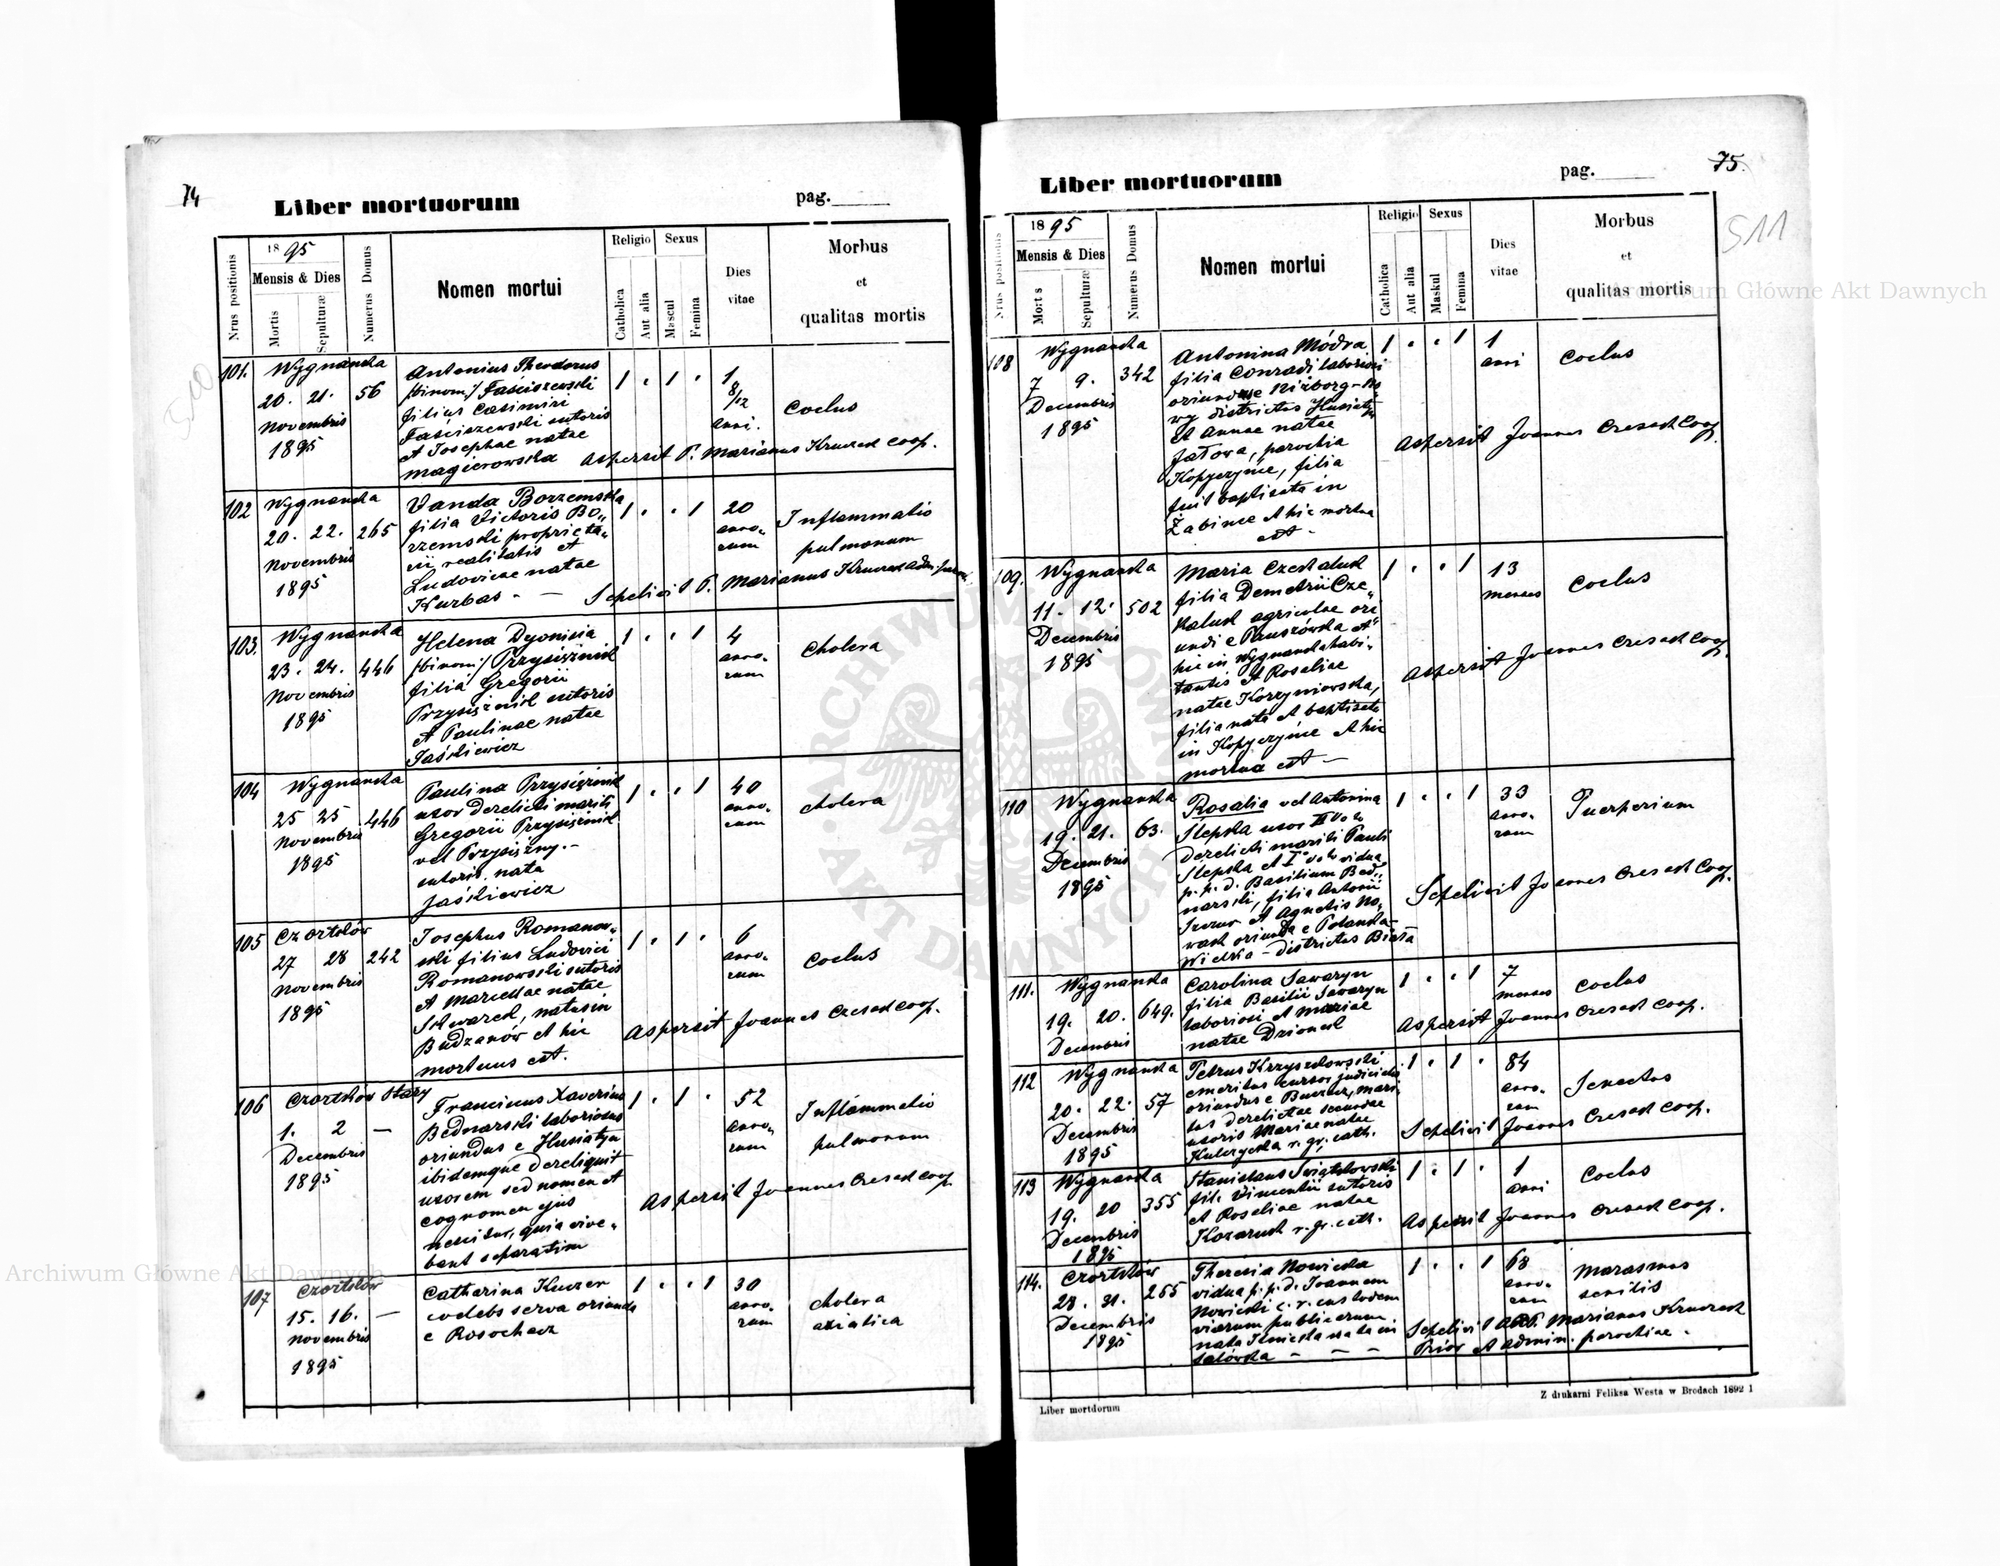 74
Liber mortuorum
pag.
Nrus positionis
1895
Mensis & Dies
Mortis
Sepulturæ
Numerus Domus
Nomen mortui
Religio
Catholica
Aut alia
Sexus
Mascul
Femina
Dies
vitae
Morbus
et
qualitas mortis
101.
Wygnanka
20. 21. 56
Novembris
1895
Antonius Theodorus
/binom:/ Faściszewski
filius Casimiri
Faściszewski sutoris
et Josephae natae
Magierowska
1 . 1 .
1
8/12
anni.
Coelus
Aspersit P. Marianus Kruczek Coop.
102
Wygnanka
20. 22. 265
Novembris
1895
Vanda Borzemska
filia Victoris Bo„
rzemski proprieta„
rii realitatis et
Ludovicae natae
Kurbas - —
1 . . 1
20
anno„
rum
Inflammatio
pulmonum
Sepelivit P. Marianus Kruczek
103.
Wygnanka
23. 24. 446
Novembris
1895
Helena Dyonisia
/binom:/ Przysiężniak
filia Gregorii
Przysiężniak sutoris
et Paulinae natae
Jaśkiewicz
1 . . 1
4
anno„
rum
Cholera
104
Wygnanka
25 25 446
Novembris
1895
Paulina Przysiężniak
uxor derelicti mariti
Gregorii Przysiężniak
vel Przysiężny. -
sutoris, nata
Jaśkiewicz
1 . . 1
40
anno„
rum
Cholera
105
Czortków
27 28 242
Novembris
1895
Josephus Romanow„
ski filius Ludovici
Romanowski sutoris
et Mariettae natae
natus in
Budzanów et hic
mortuus est.
1 . 1 .
6
anno„
rum
Coelus
Aspersit Joannes Czesak Coop.
106
Czortków Stary
1. 2 —
Decembris
1895
Franciscus Xaverius
Bednarski laboriosus
oriundus e Husiatyn
ibidemque dereliquit
uxorem sed nomen et
cognomen ejus
nescitur, quia vive„
bant separatim
1 . 1 .
52
anno„
rum
Inflammatio
pulmonum
Aspersit Joannes Czesak Coop.
107
Czortków
15. 16. —
Novembris
1895
Catharina Kuczer
coelebs serva oriunda
e Rosochacz
1 . . 1
30
anno„
rum
Cholera
asiatica
75.
511
Liber mortuorum
pag.
Nrus positionis
1895
Mensis & Dies
Mort s
Sepulturæ
Numerus Domus
Nomen mortui
Religio
Catholica
Aut alia
Sexus
Maskul
Femina
Dies
vitae
Morbus
et
qualitas mortis
108
Wygnanka
7 9. 342
Decembris
1895
Antonina Módra
filia Conradi laboriosi
oriundae Niżborg-No„
wy districtus Husiatyn
et Annae natae
Jatowa, parochia
Kopyczyńce, filia
fuit baptisata in
Żabińce et hic mortua
est -
1 . . 1
1
anni
Coelus
Aspersit Joannes Czesak Coop.
109.
Wygnanka
11. 12. 502
Decembris
1895
Maria Czekaluk
filia Demetrii Cze„
kaluk agricolae ori„
undi e Pauszówka et
hic in Wygnanka habi„
tantis et Rosaliae
natae Korzyniowska,
filia nata et baptisata
in Kopyczyńce et hic
mortua est —
1 . . 1
13
menses
Coelus
Aspersit Joannes Czesak Coop.
110
Wygnanka
19. 21. 63.
Decembris
1895
Rosalia vel Antonina
Slepska uxor II voto
derelicti mariti Pauli
Slepska et I voto vidua
p. p. d. Basilium Bed„
narski, filia Antonii
et Agnetis No„
wak oriunda e Polanka
Wielka - districtus Biała
1 . . 1
33
anno„
rum
Puerperium
Sepelivit Joannes Czesak Coop.
111.
Wygnanka
19. 20. 649.
Decembris
Carolina Sawaryn
filia Basilii Sawaryn
laboriosi et Mariae
natae Dzionek
1 . . 1
7
menses
Coelus
Aspersit Joannes Czesak Coop.
112
Wygnanka
20. 22. 57
Decembris
1895
Petrus Krzyszkowski
emeritus cursor judicialis
oriundus e Buczacz, mari„
tus derelictae secundae
uxoris Mariae natae
Kulczycka r. gr. cath.
1 . 1 .
84
anno„
rum
Senectus
Sepelivit Joannes Czesak Coop.
113
Wygnanka
19. 20 355
Decembris
1895
Stanislaus Swiątkowski
fil. Vincentii sutoris
et Rosaliae natae
Kozaruk r. gr. cath.
1 . 1 .
1
anni
Coelus
Aspersit Joannes Czesak Coop.
114.
Czortków
28. 31. 255
Decembris
1895
Theresia Nowicka
vidua p. p. d. Joannem
Nowicki c. r. custodem
viarum publicarum
nata Ilnicka nata in
Salówka — — —
1 . . 1
68
anno„
rum
Marasmus
senilis
Sepelivit Marianus Kruczek
Prior et admin. parochiae.
Liber mortdorum
Z drukarni Feliksa Westa w Brodach 1892 1
Archiwum Główne Akt Dawnych
Archiwum Główne Akt Dawnych
ARCHIWUM GŁÓWNE AKT DAWNYCH